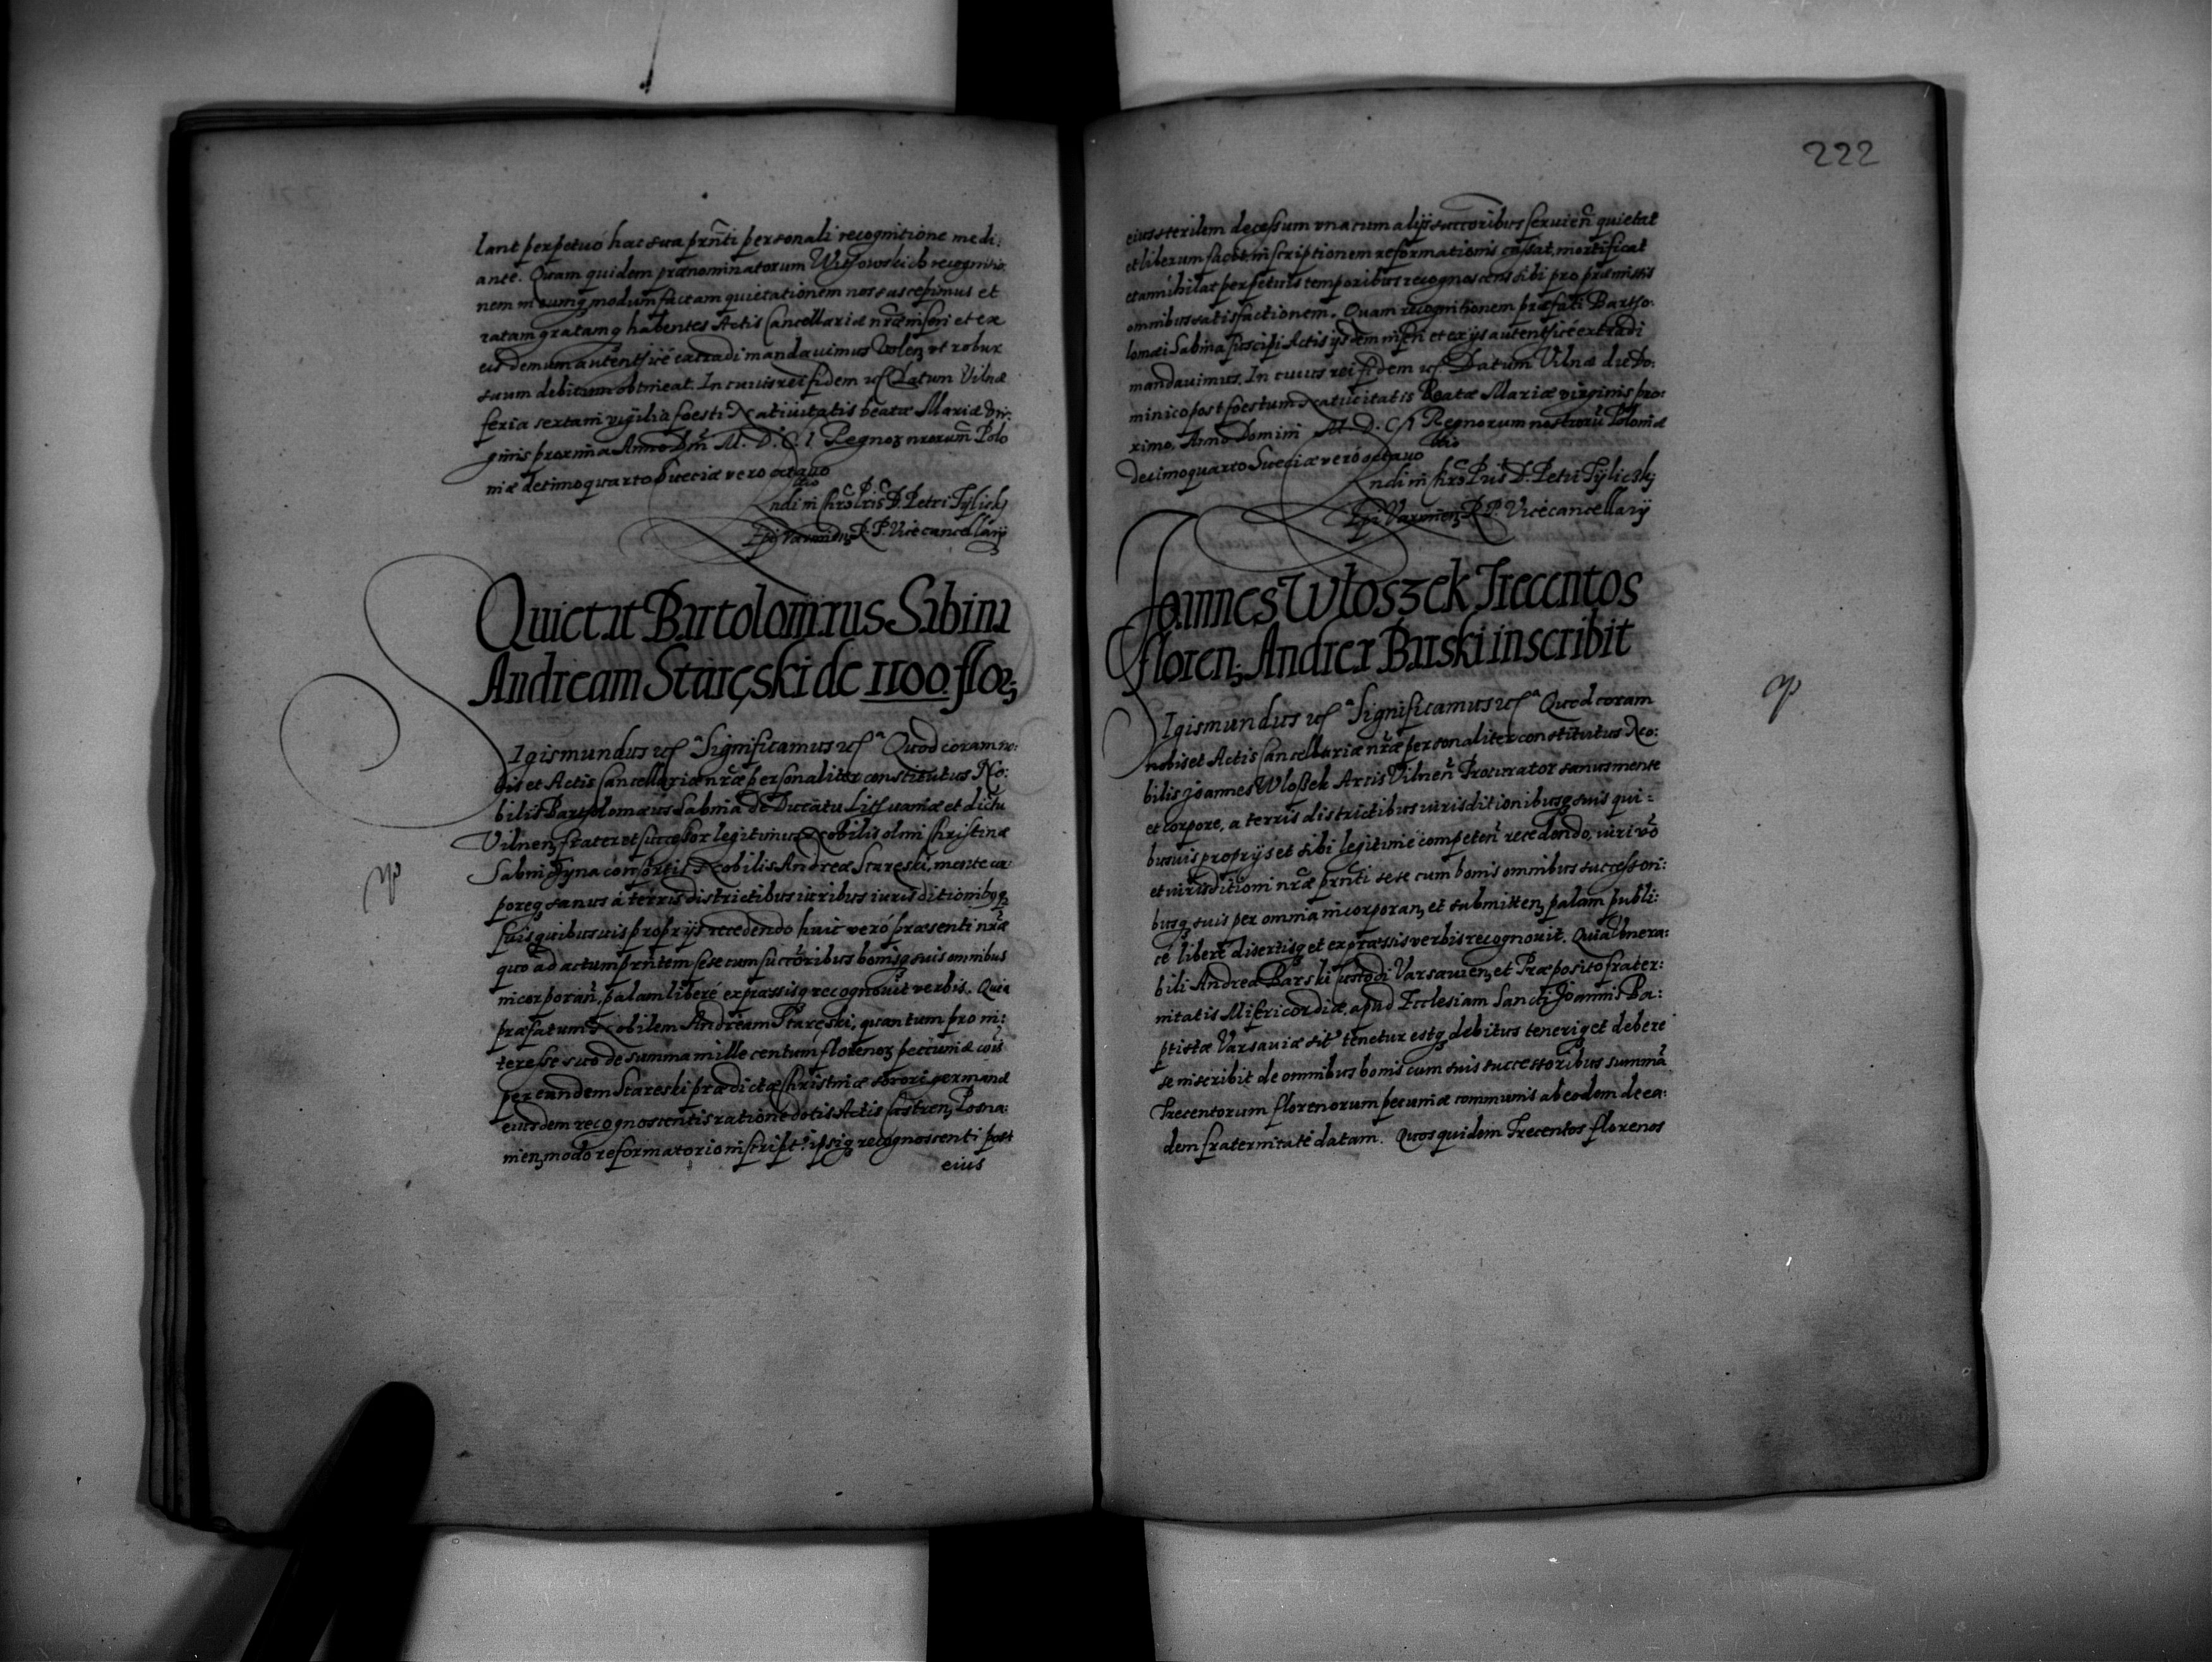 lant perpetuó hac sua prñti personali recognitione medi:
ante. Quam quidem prænominatorum Witſowskich recognitio
nem in eumq modum factam quietationem nos suscepimus et
ratam gratamq habentes Actis Cancellariæ nræ inseri et ex
eisdemum autentſicé extradi mandauimus Volenʒ vt robur
suum debitum obtineat. In cuius rei fidem ꝛcꝭ Datum Vilnæ
feria sexta in vigilia foesti Natiuitatis beatæ Mariæ vir:
ginis proxima Anno Dñi M. D. C. I Regnoꝝ nrorum Polo
niæ decimoquarto Sueciæ vero octauo
ndi in Chro Pris D. Petri Tylicki
Epi Varmienʒ R. P. Vicecancellarij
Quietat Bartolomæus Sabina
Andream Staręski de 1100. floꝛʒ
Sigismundus ꝛcꝭ Significamus ꝛcꝭ Quod coram no:
bis et Actis Cancellariæ nræ personaliter constitutus No:
bilis Bartſolomæus Sabina de Ducatu Litſuaniæ et dictu
Vilnenʒ frater et successor legitimus Nobilis olim Christinæ
Sabiniſzyna consortis Nobilis Andreæ Stareski, mente cor
poreq sanus á terris districtibus iuribus iurisditionibqꝫ
suis quibusuis proprijs recedendo huic veró præsenti nræ
quo ad actum prñtem sese cum succoribus bonisq suis omnibus
incorporañ, palam liberé expræssisq recognouit verbis. Quia
præfatum Nobilem Andream Staręski, quantum pro in:
teresse suo de summa mille centum florenoꝝ pecuniæ cois
per eundem Stareski prædictæ Christinæ sorori germanæ
eiusdem recognoscentis ratione dotis Actis Castrenʒ Posna:
nienʒ modo reformatorio inscript: ipsiq recognoscenti post
eius
222
eius sterilem decessum vna cum alijs succoribus seruień quietat
et liberum facit inscriptionem reformationis cassat, mortificat
et annihilat perpetuis temporibus recognoscens sibi pro præmissis
omnibus satisfactionem. Quam recognitionem præfati Bartſo:
lomæi Sabina suscipi Actis ijsdem inseri et ex ijs autentſicé extradi
mandauimus. In cuius rei fidem ꝛcꝭ Datum Vilnæ die Do:
minico post foestum Natiuitatis Beatæ Mariæ virginis pro:
ximo. Anno Domini M. D. C I Regnorum nostrorũ Poloniæ
decimoquarto Sueciæ vero octauo
ndi in Chro Pris D. Petri Tyliczkj
Epi Varmienʒ R. P. Vicecancellarij
Joannes Włoszek Trecentos
florenʒ Andreæ Barski inscribit
Sigismundus ꝛcꝭ Significamus ꝛcꝭ Quod coram
nobis et Actis Cancellariæ nræ personaliter constitutus No:
bilis Joannes Wloßek Arcis Vilneñ Procurator sanus mente
et corpore, a terris districtibus iurisditionibusq suis qui:
busuis proprijs et sibi legitimé competeñ recedendo, iuri vo
et iurisditioni nræ prñti sese cum bonis omnibus successori:
busq suis per omnia incorporanʒ et submittenʒ palam publi:
cé liberé disertisq et expræssis verbis recognouit. Quia Venera:
bili Andreæ Barski Custodi Varsauienʒ et Præposito frater:
nitatis Misericordiæ, apud Ecclesiam Sancti Joannis Ba:
ptistæ Varsauiæ sit tenetur estq debitus teneriq et debere
se inscribit de omnibus bonis cum suis successoribus summã
Trecentorum florenorum pecuniæ communis ab eodem de ea:
dem fraternitate datam. Quos quidem Trecentos florenos